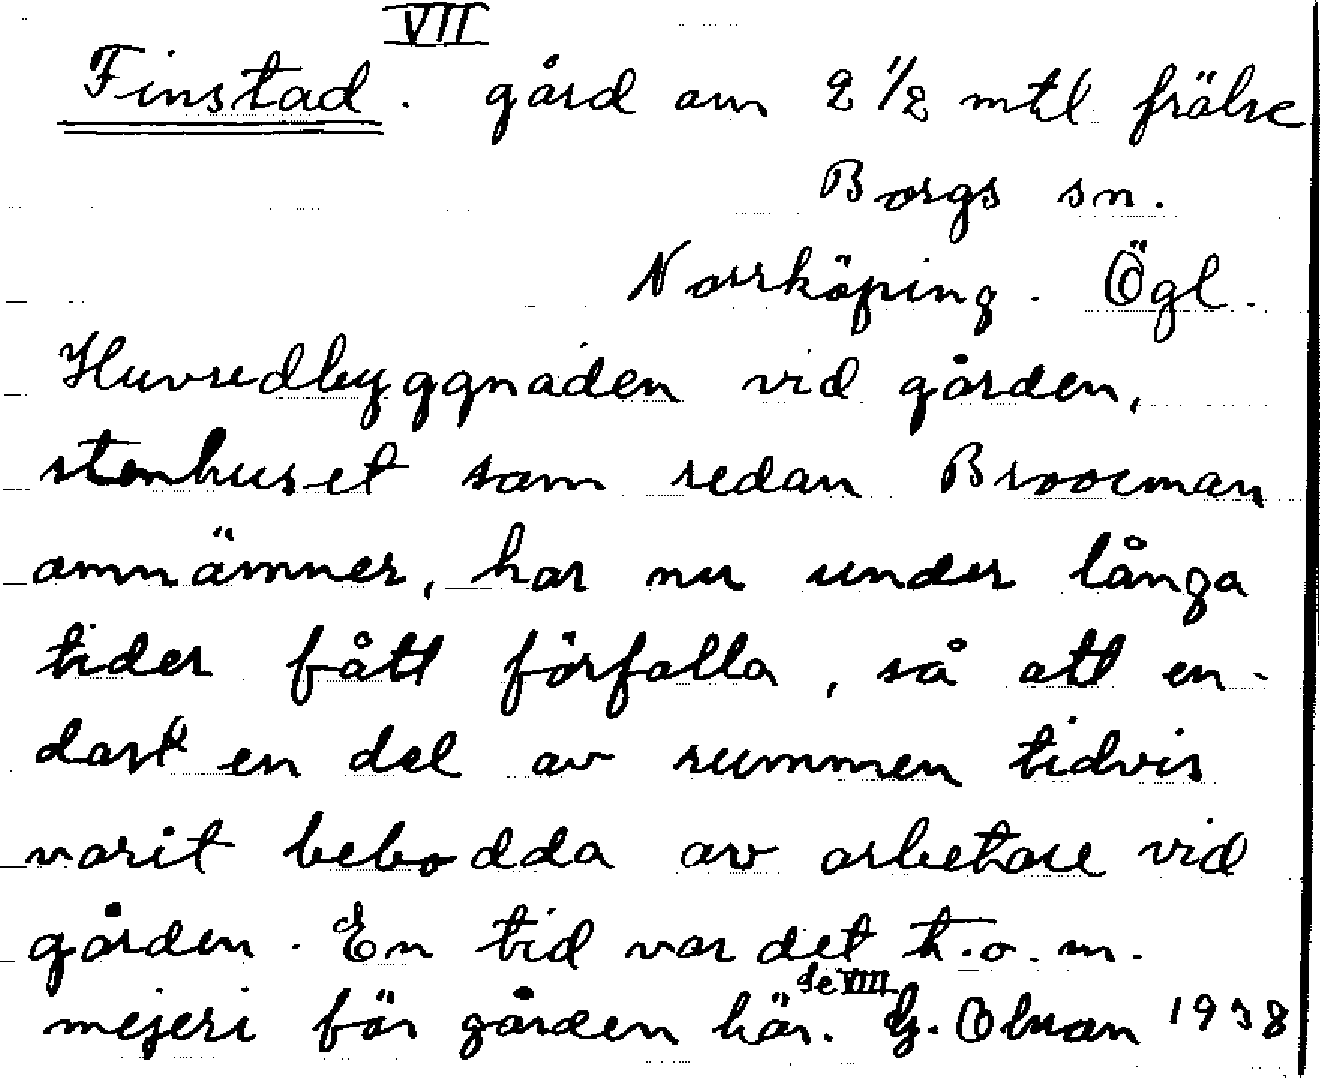 VII
Finstad. gård om 2 1/2 mtl frälse
Borgs sn.
Norrköping. Ögl.
Huvudbyggnaden vid gården,
stenhuset som redan Broocman
omnämner, har nu under långa
tider fått förfalla, så att en-
dast en del av rummen tidvis
varit bebodda av arbetare vid
gården. En tid var det t.o.m.
se VIII
mejeri för gården här. G. Olson 1938